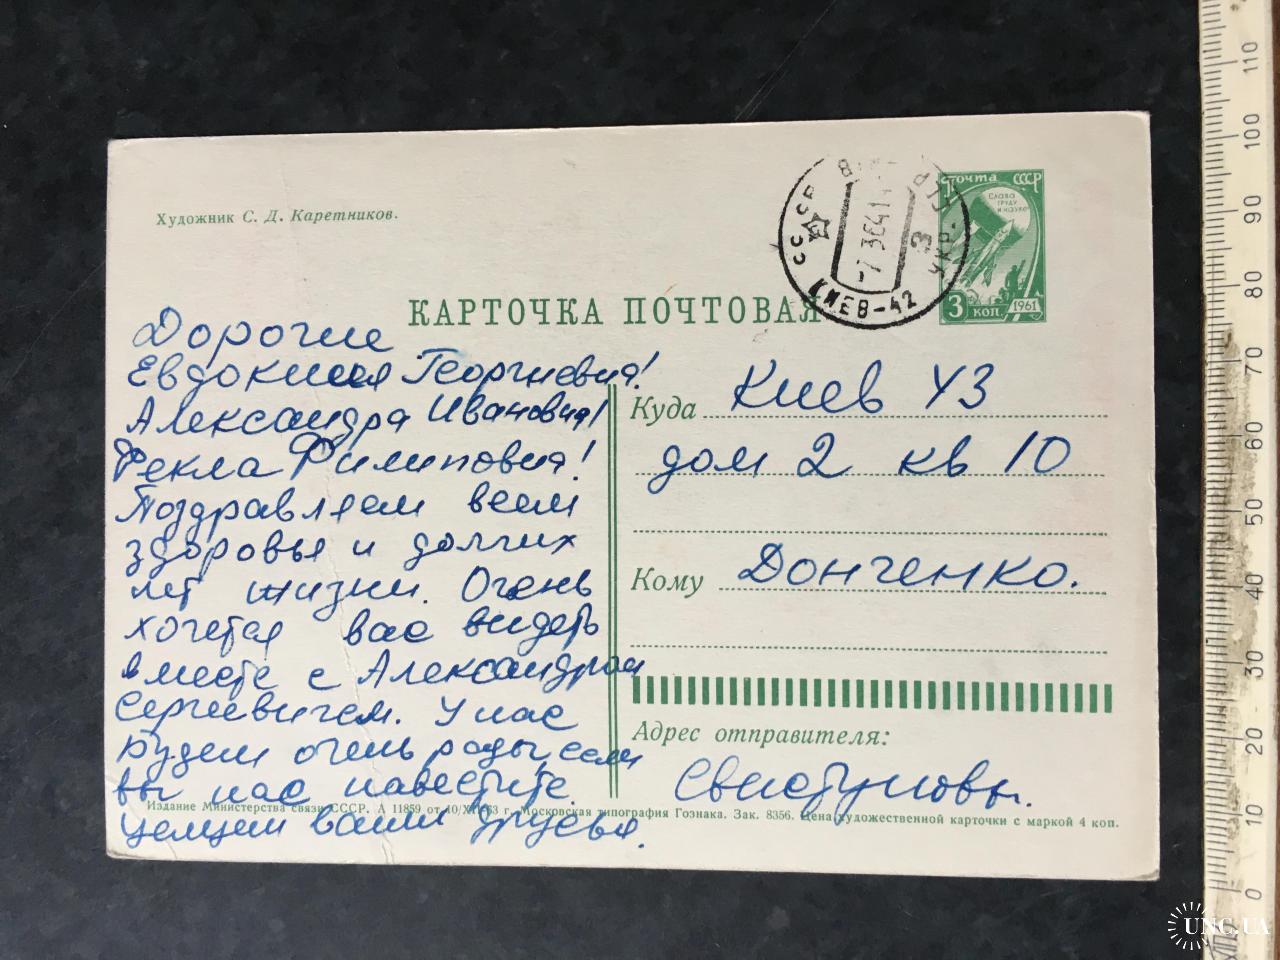 Художник С. Д. Каретников.
КАРТОЧКА ПОЧТОВАЯ
ПОЧТА СССР
СЛАВА ТРУДУ И НАУКЕ
3 КОП. 1961
СССР КИЕВ-42 УКР.
-7364
Дорогие
Евдокимия Георгиевна!
Александра Ивановна!
Фекла Филиповна!
Поздравляем всем
здоровья и долгих
лет жизни. Очень
хочется вас видеть
вместе с Александром
Сергеевичем. У нас
будем очень рады, если
вы нас навестите
целуем ваши друзья.
Куда Киев 43
дом 2 кв 10
Кому Донченко.
Адрес отправителя:
Свистуновы.
Издание Министерства связи СССР. А 11859 от 10/XII 63 г. Московская типография Гознака. Зак. 8356. Цена художественной карточки с маркой 4 коп.
0 10 20 30 40 50 60 70 80 90 100 110
UNC.UA